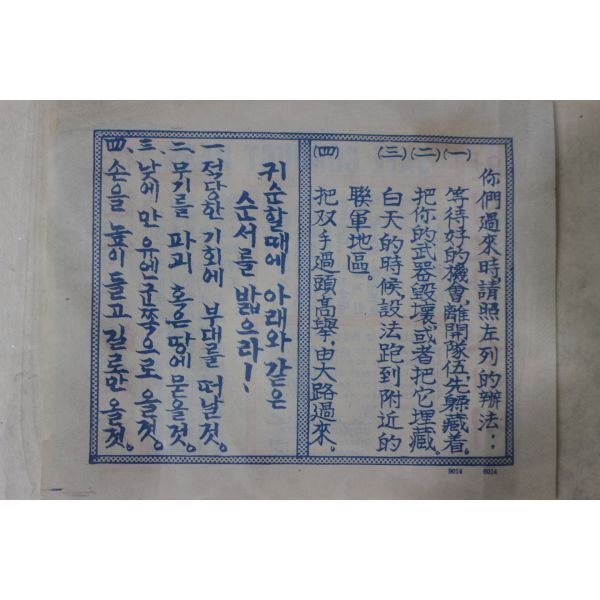 你們過來時,請照左列的辦法:
(一) 等待好的機會,離開隊伍,先躱藏着。
(二) 把你的武器毀壞或者把它埋藏。
(三) 白天的時候設法跑到附近的
聯軍地區。
(四) 把双手過頭高舉,由大路過來。
귀순할때에 아래와 같은
순서를 밟으라!
一、적당한 기회에 부대를 떠날것。
二、무기를 파괴 혹은 땅에 묻을것。
三、낮에만 유엔군쪽으로 올것。
四、손을 높이 들고 길로만 올것。
9014 8014